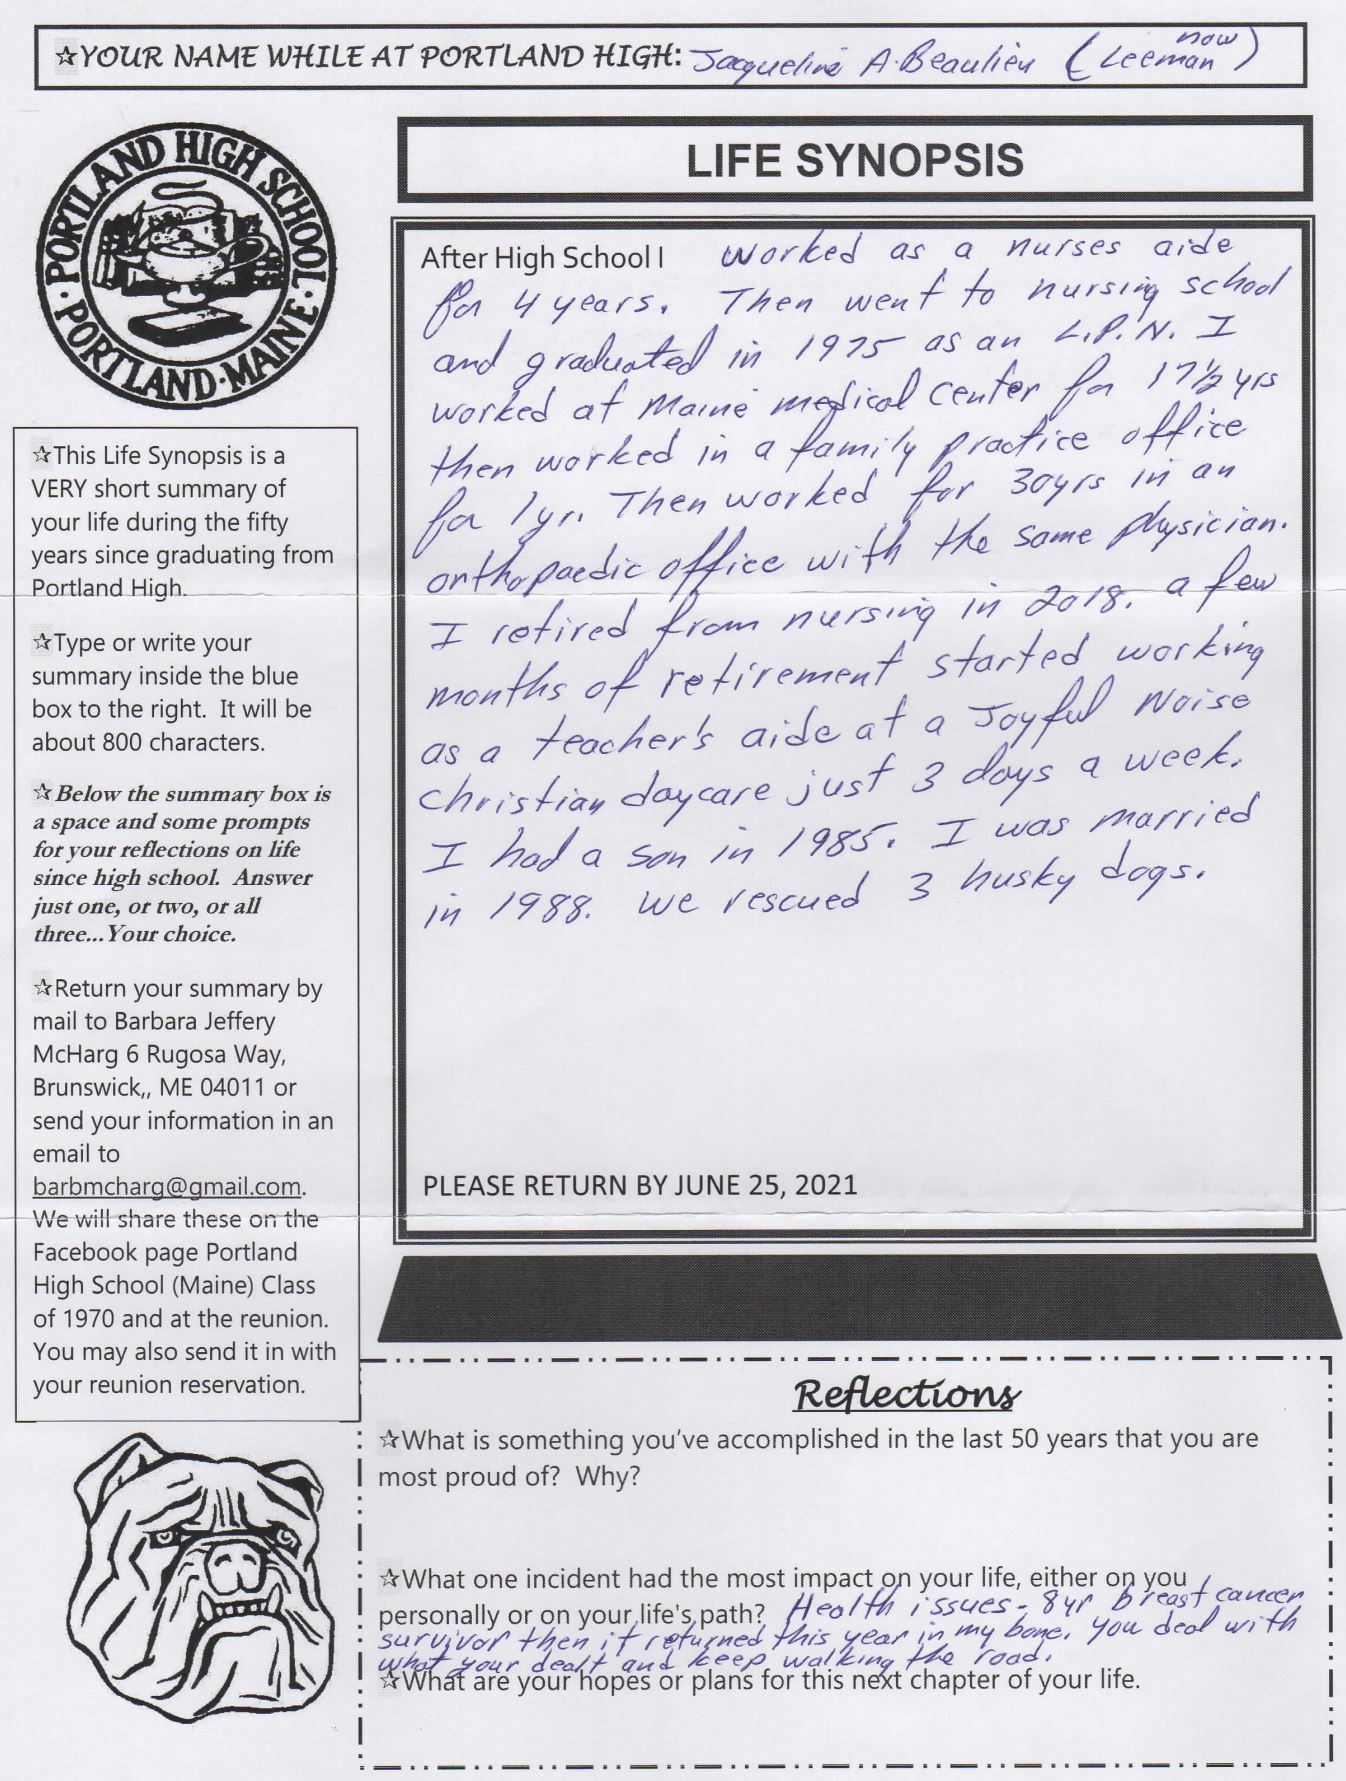 ☆YOUR NAME WHILE AT PORTLAND HIGH: Jacqueline A. Beaulieu (now Leeman)
PORTLAND HIGH SCHOOL
PORTLAND · MAINE
LIFE SYNOPSIS
After High School I worked as a nurses aide
for 4 years. Then went to nursing school
and graduated in 1975 as an L.P.N. I
worked at Maine medical Center for 17½ yrs
then worked in a family practice office
for 1yr. Then worked for 30yrs in an
orthopaedic office with the same physician.
I retired from nursing in 2018. a few
months of retirement started working
as a teacher's aide at a Joyful Noise
Christian daycare just 3 days a week.
I had a son in 1985. I was married
in 1988. We rescued 3 husky dogs.
PLEASE RETURN BY JUNE 25, 2021
☆This Life Synopsis is a
VERY short summary of
your life during the fifty
years since graduating from
Portland High.
☆Type or write your
summary inside the blue
box to the right. It will be
about 800 characters.
☆Below the summary box is
a space and some prompts
for your reflections on life
since high school. Answer
just one, or two, or all
three...Your choice.
☆Return your summary by
mail to Barbara Jeffery
McHarg 6 Rugosa Way,
Brunswick,, ME 04011 or
send your information in an
email to
barbmcharg@gmail.com.
We will share these on the
Facebook page Portland
High School (Maine) Class
of 1970 and at the reunion.
You may also send it in with
your reunion reservation.
Reflections
☆What is something you've accomplished in the last 50 years that you are
most proud of? Why?
☆What one incident had the most impact on your life, either on you
personally or on your life's path? Health issues - 8yr breast cancer
survivor then it returned this year in my bone. You deal with
what your dealt and keep walking the road.
☆What are your hopes or plans for this next chapter of your life.